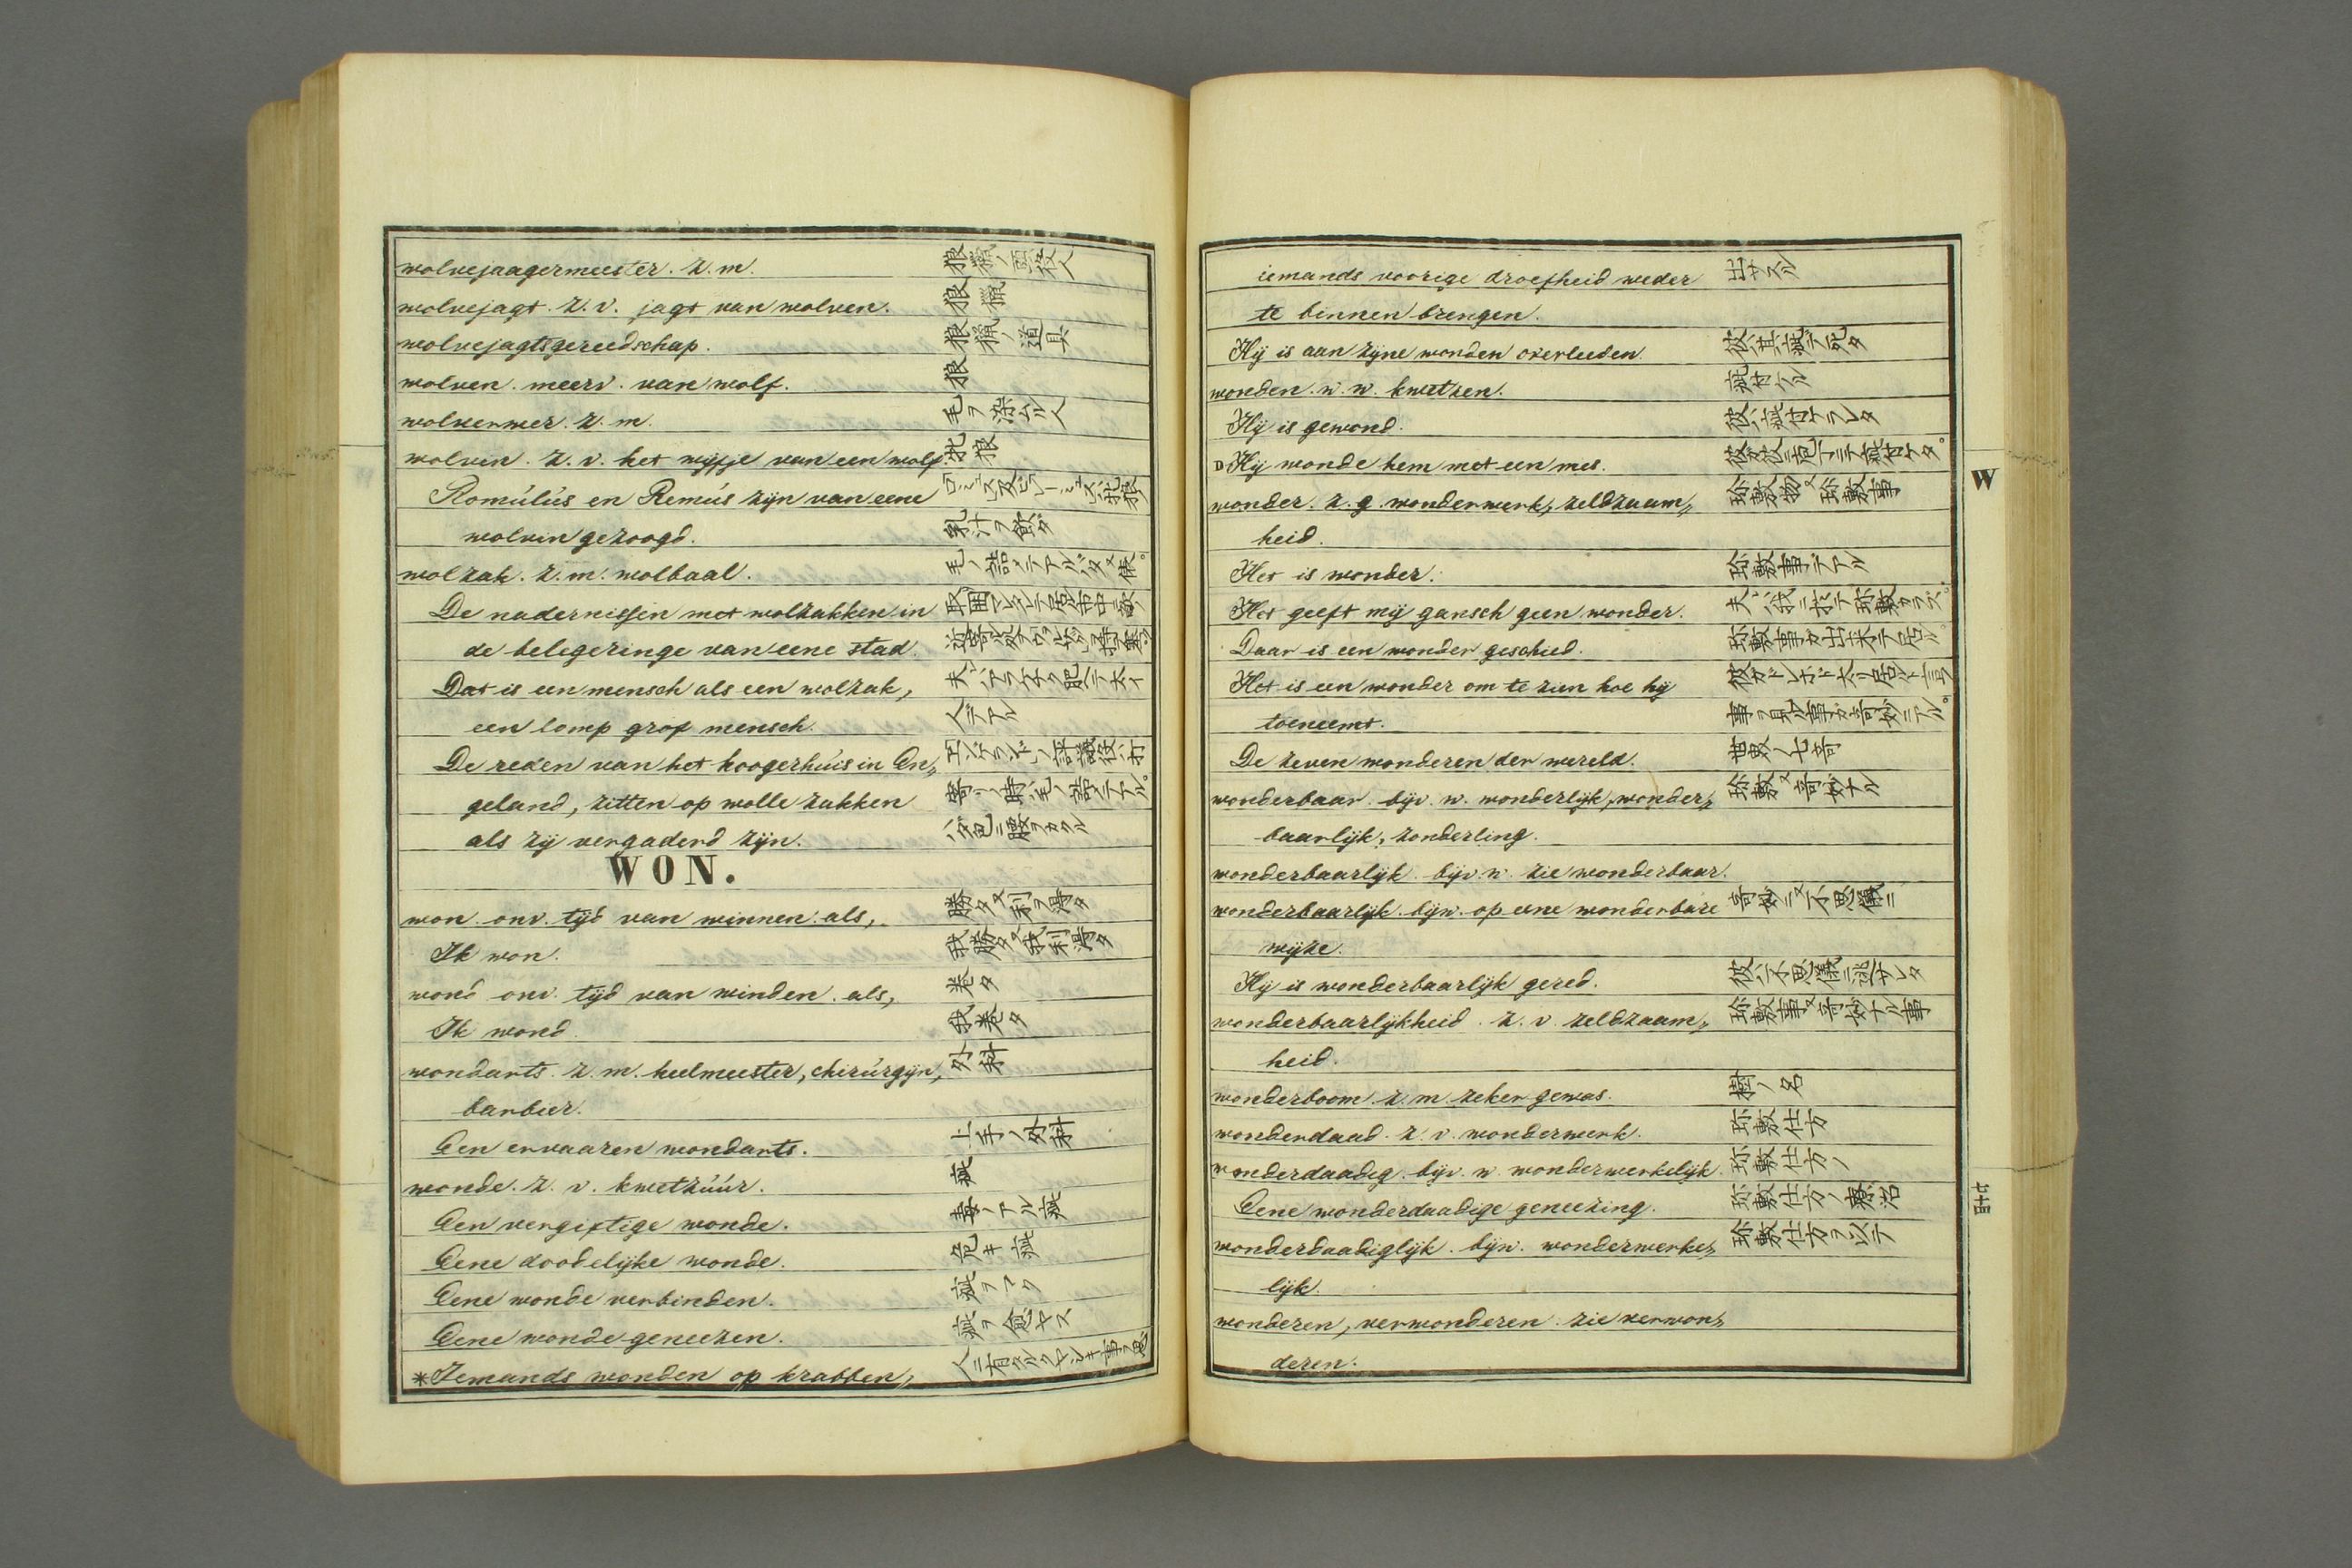 wolvejaagermeester. z. m. 狼猟ノ
wolvejagt. z. v. jagt van wolven. 狼猟
wolvejagtsgereedschap. 狼猟ノ道具
wolven. meerv. van wolf. 狼
wolverwer. z. m. 毛ヲ染ムル人
wolvin. z. v. het wijfje van een wolf. 牝狼
Romúlús en Remús zijn van eene
wolvin gezoogd. 乳汁ヲ飲ダ
wolzak. z. m. wolbaal.
De nadernissen met wolzakken in
de belegeringe van eene stad.
Dat is een mensch als een wolzak,
een lomp grof mensch. 人デアル
De reden van het hoogerhúis in En„
geland, zitten op wolle zakken
als zij vergaderd zijn.
WON.
won. onv. tijd van winnen. als, 勝タ又利ヲ得タ
Ik won. 我勝タ又我利得タ
wond onv. tijd van winden. als, 巻タ
Ik wond. 我巻タ
wondarts. z. m. heelmeester, chirúrgijn, 外科
barbier.
Een ervaaren wondarts. 上手ノ外科
wonde. z. v. kwetzúúr. 疵
Een vergiftige wonde. 毒ノアル疵
Eene doodelijke wonde. 危キ疵
Eene wonde verbinden. 疵ヲマク
Eene wonde geneezen. 疵ヲ愈ヤス
*Iemands wonden op krabben,
iemands voorige droefheid weder 出サスル
te binnen brengen.
Hij is aan zijne wonden overleeden. 彼ハ其疵デ死タ
wonden. w. w. kwetzen. 疵付ル
Hij is gewond. 彼ハ疵付ラレタ
Hij wonde hem met een mes.
wonder. z. g. wonderwerk, zeldzaam„ 珍敷物又珍敷事
heid.
Het is wonder. 珍敷事デアル
Het geeft mij gansch geen wonder.
Daar is een wonder geschied. 珍敷事ガ出来テ居ル。
Het is een wonder om te zien hoe hij
toeneemt. 事ヲ見ル事ガ奇妙デアル。
De zeven wonderen der wereld. 世界ノ七奇
wonderbaar. bijv. w. wonderlijk, wonder„ 珍敷又奇妙ナル
baarlijk, zonderling.
wonderbaarlijk. bijv. w. zie wonderbaar.
wonderbaarlijk. bijw. op eene wonderbare 奇妙ニ又不思儀ニ
wijze.
Hij is wonderbaarlijk gered. 彼ハ不思儀ニ逃サレタ
wonderbaarlijkheid. z. v. zeldzaam„ 珍敷事又奇妙ナル事
heid.
wonderboom. z. m. zeker gewas. 樹ノ名
wonderdaad. z. v. wonderwerk. 珍敷仕方
wonderdaadig. bijv. w. wonderwerkelijk. 珍敷仕方ノ
Eene wonderdaadige geneezing. 珍敷仕方ノ療治
wonderdaadiglijk. bijw. wonderwerke„ 珍敷仕方ヲ以テ
lijk.
wonderen, verwonderen. zie verwon„
deren.
W